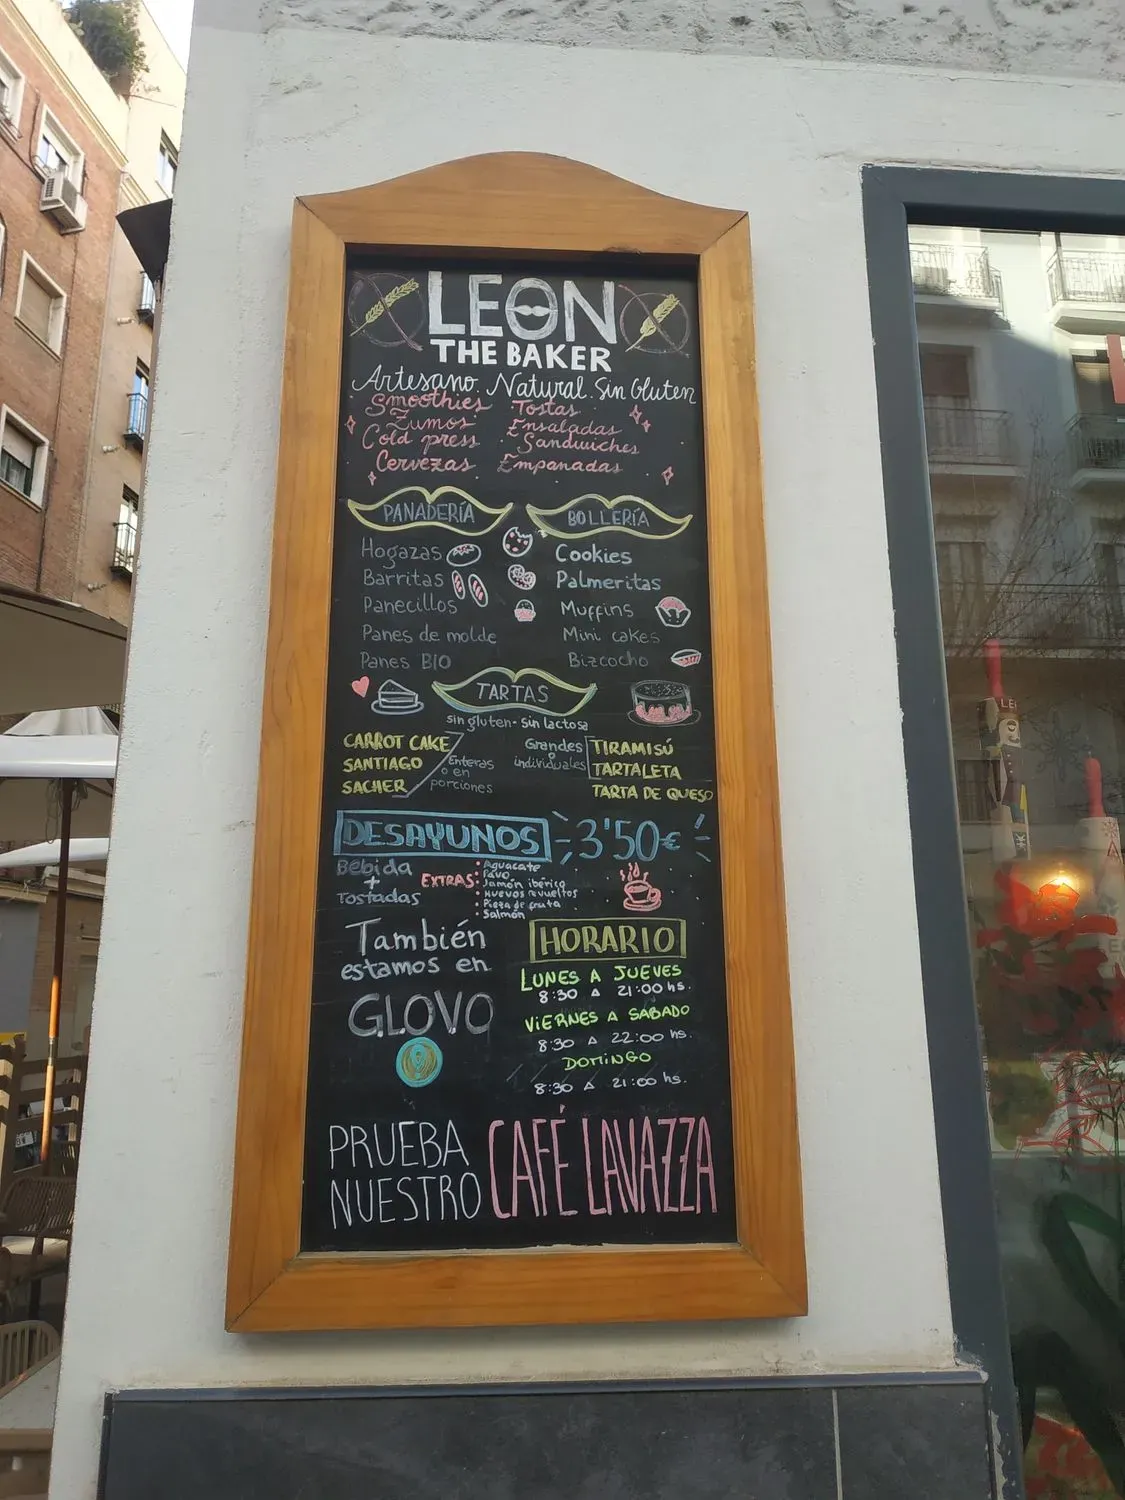 LEON
THE BAKER
Artesano. Natural. Sin Gluten
Smoothies
Zumos
Cold press
Cervezas
Tostas
Ensaladas
Sandwiches
Empanadas
PANADERÍA
Hogazas
Barritas
Panecillos
Panes de molde
Panes BIO
BOLLERÍA
Cookies
Palmeritas
Muffins
Mini cakes
Bizcocho
TARTAS
sin gluten - sin lactosa
CARROT CAKE
SANTIAGO
SACHER
Enteras
o en
porciones
Grandes
o
individuales
TIRAMISÚ
TARTALETA
TARTA DE QUESO
DESAYUNOS 3'50€
Bebida
+
Tostadas
EXTRAS:
• Aguacate
• Pavo
• Jamón ibérico
• Huevos revueltos
• Pieza de fruta
• Salmón
También
estamos en
GLOVO
HORARIO
LUNES A JUEVES
8:30 A 21:00 hs.
VIERNES A SABADO
8:30 A 22:00 hs.
DOMINGO
8:30 A 21:00 hs.
PRUEBA
NUESTRO
CAFÉ LAVAZZA